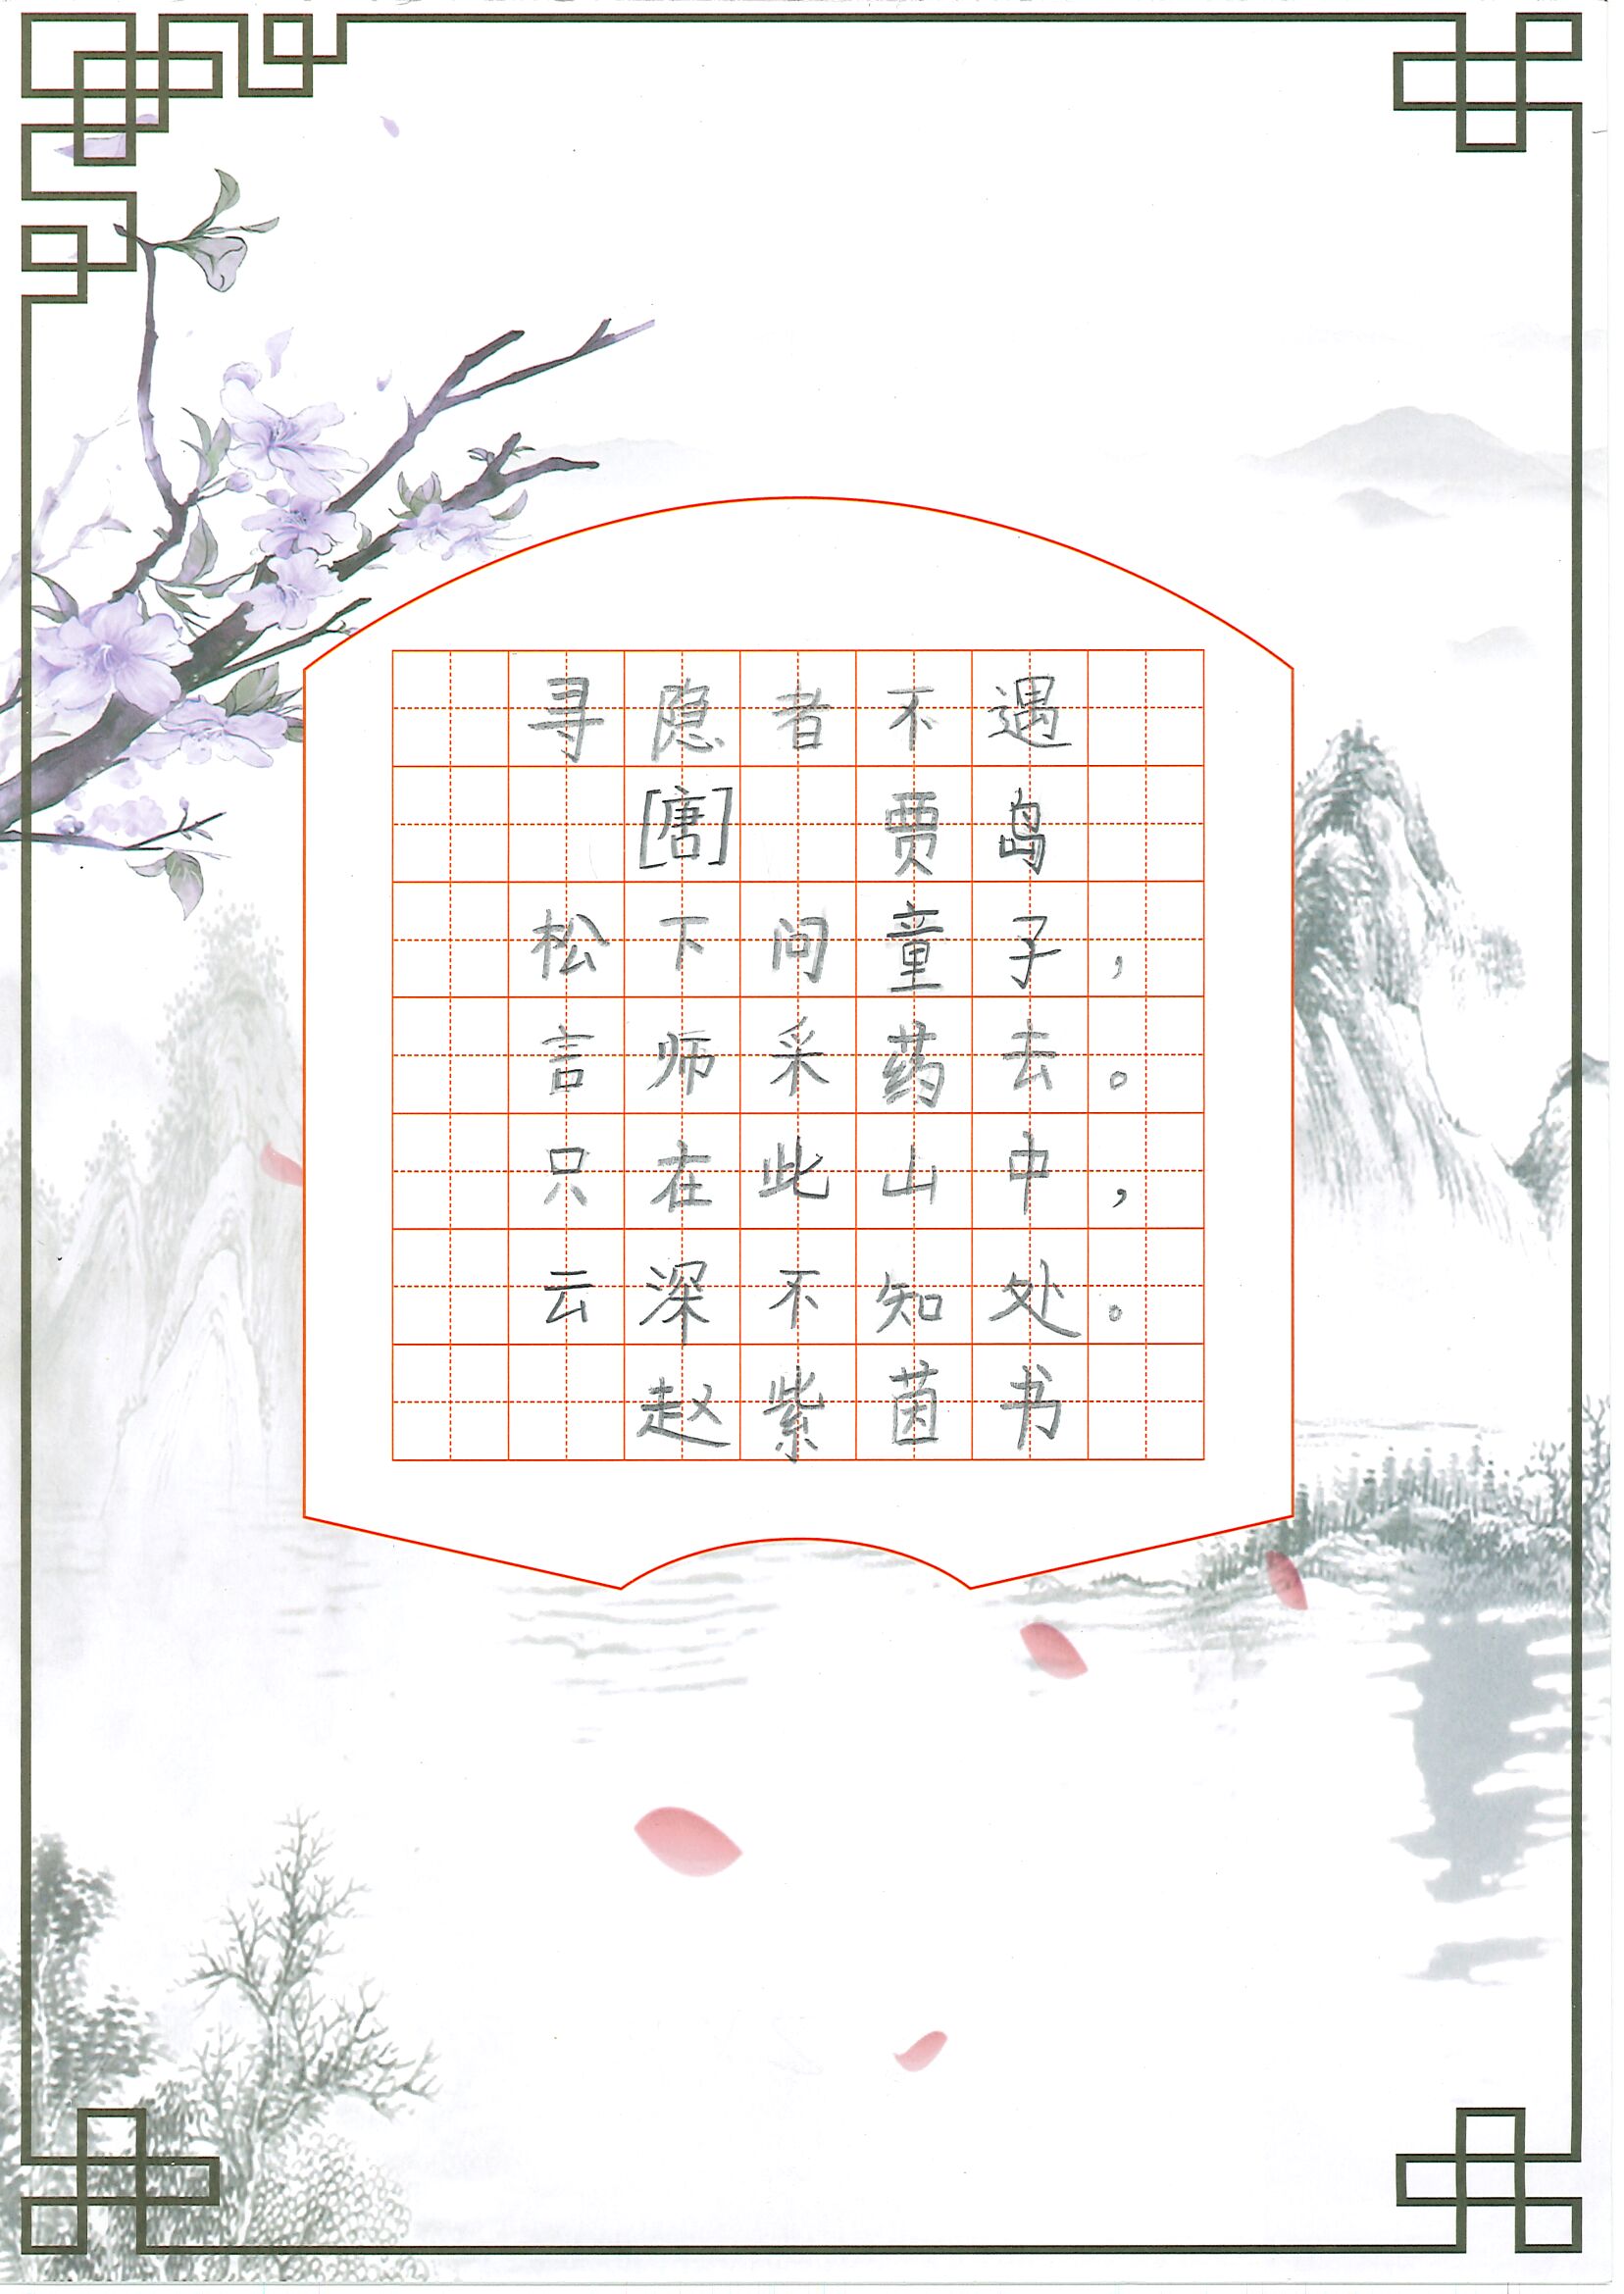 寻隐者不遇
[唐] 贾岛
松下问童子，
言师采药去。
只在此山中，
云深不知处。
赵紫茵书